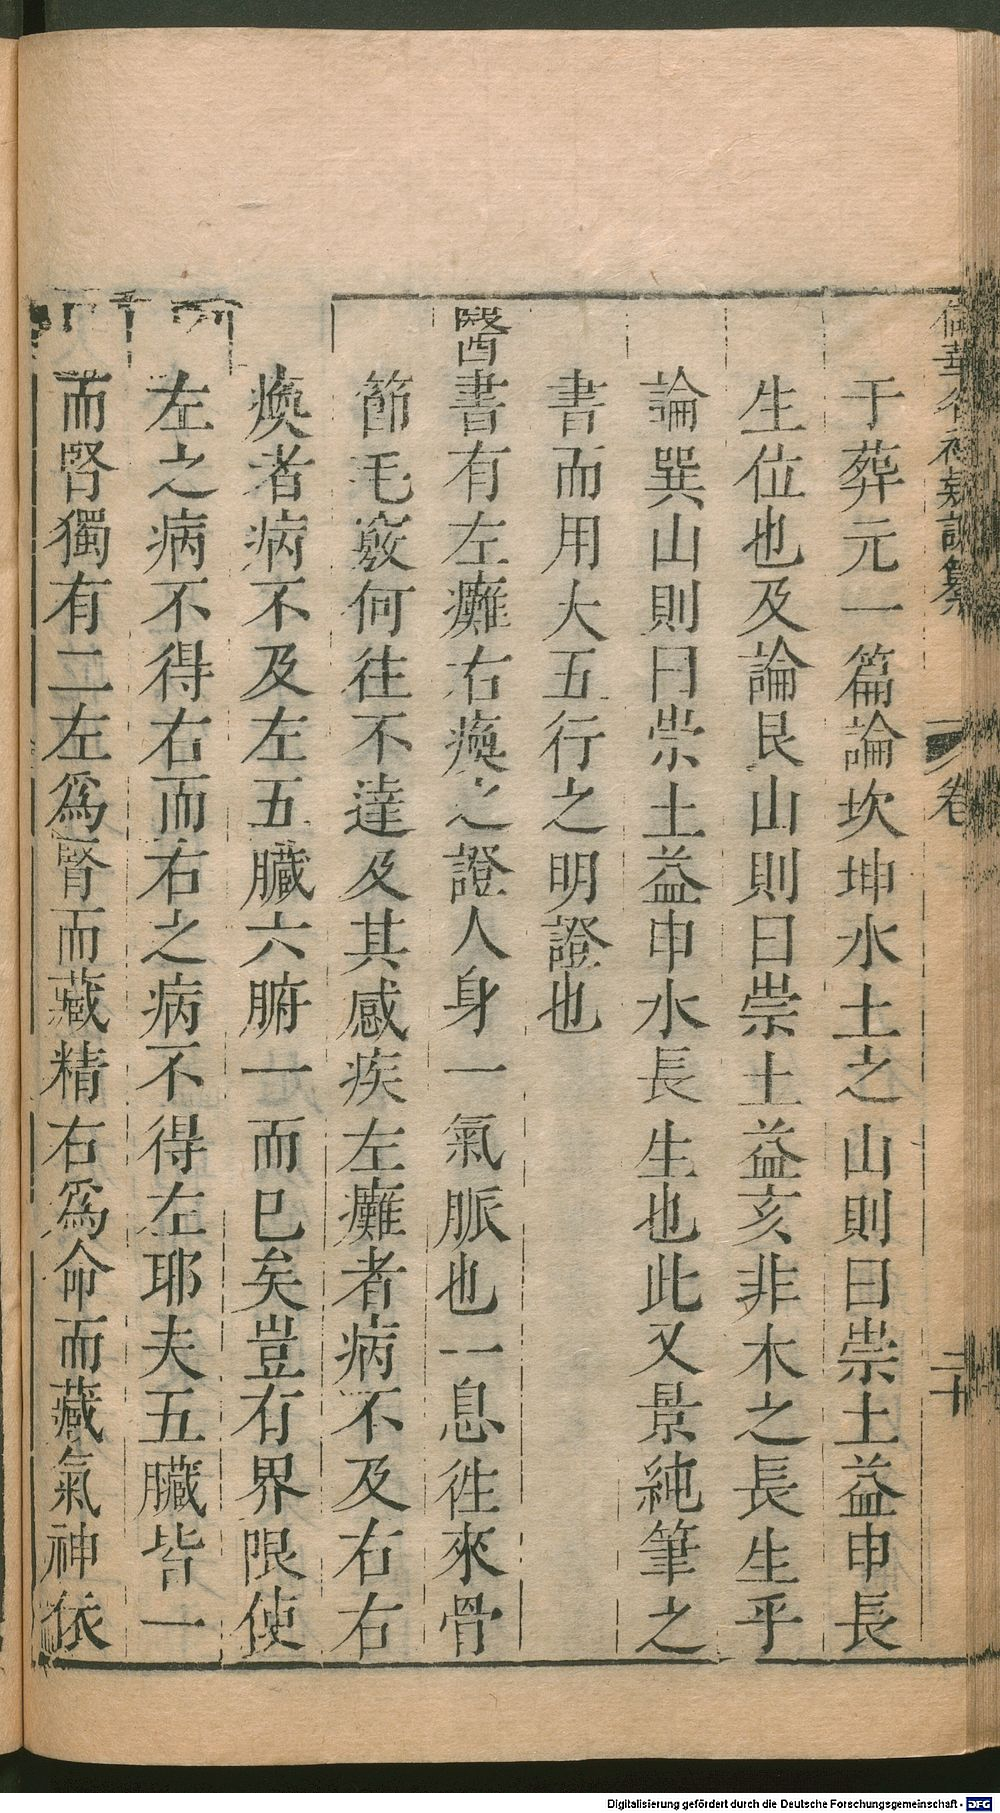 于葬元一篇論坎坤水土之山則曰崇土益申長
生位也及論艮山則曰崇土益亥非木之長生乎
論巽山則曰崇土益申水長生也此又景純筆之
書而用大五行之明證也
醫書有左癱右瘓之證人身一氣脈也一息徃來骨
節毛竅何往不達及其感疾左癱者病不及右右
瘓者病不及左五臟六腑一而已矣豈有界限使
左之病不得右而右之病不得左耶夫五臟皆一
而腎獨有二左爲腎而藏精右爲命而藏氣神依
卷
二十
Digitalisierung gefördert durch die Deutsche Forschungsgemeinschaft - DFG